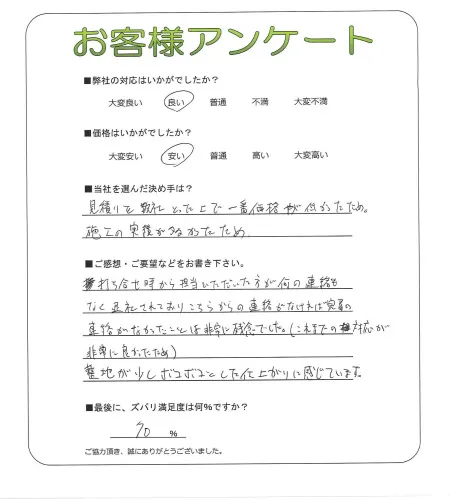 お客様アンケート
■弊社の対応はいかがでしたか？
大変良い 良い 普通 不満 大変不満
■価格はいかがでしたか？
大変安い 安い 普通 高い 大変高い
■当社を選んだ決め手は？
見積りを数社とった上で一番価格が低かったため。
施工の実績が多かったため
■ご感想・ご要望などをお書き下さい。
打ち合せ時から担当いただいた方が何の連絡も
なく退社されておりこちらからの連絡がなければ変更の
連絡がなかったことは非常に残念でした。(これまでの対応が
非常に良かったため)
整地が少しボコボコとした仕上がりに感じています。
■最後に、ズバリ満足度は何％ですか？
70 %
ご協力頂き、誠にありがとうございました。